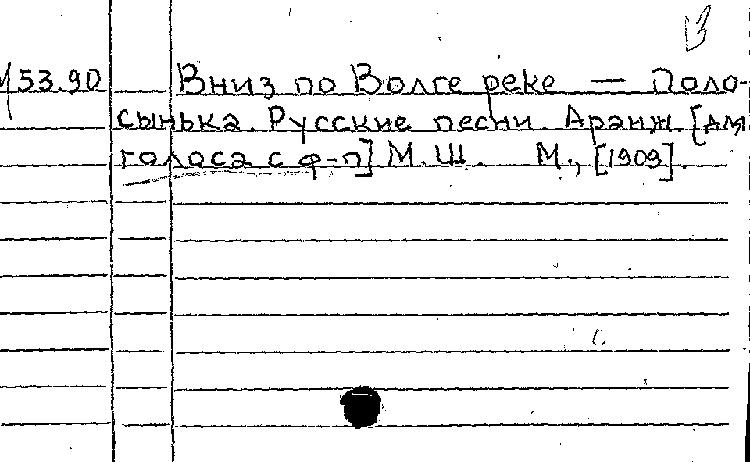 В
53.90 Вниз по Волге реке — Поло-
сынька. Русские песни. Аранж. [для
голоса с ф-п] М.Ш. М., [1909].